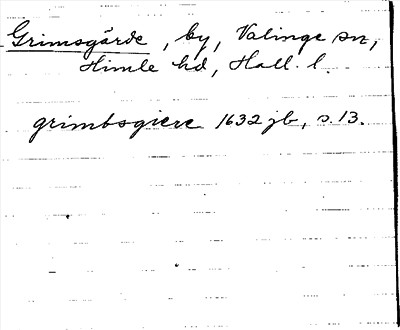 Grimsgärde, by, Valinge sn,
Himle hd, Hall. l.
grimbsgiere 1632 jb, s. 13.